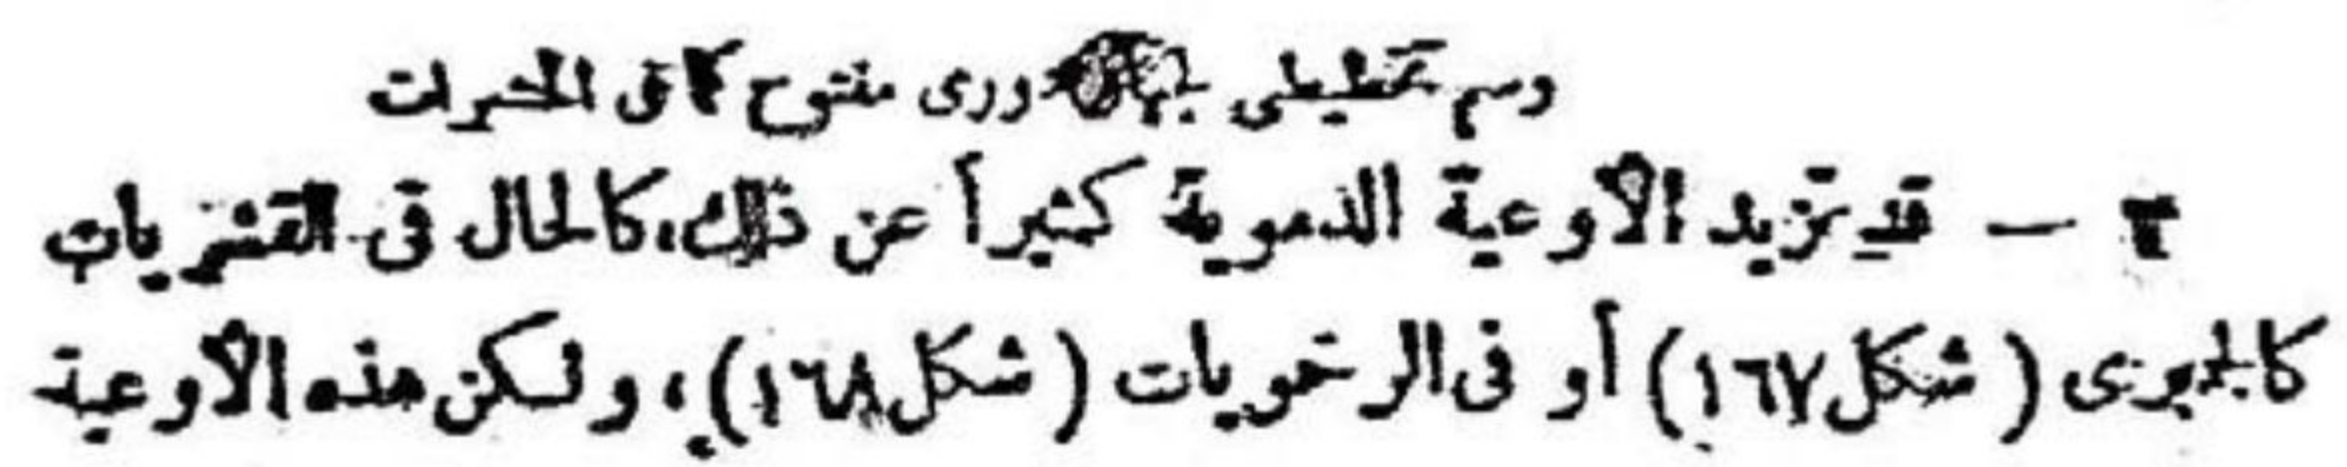 رسم تخطيطى دورى مفتوح كما فى الحشرات
٣ — قد تزيد الأوعية الدموية كثيراً عن ذلك، كالحال فى القشريات
كالجمبرى (شكل ١٦٧) أو فى الرخويات (شكل ١٦٨)، ولكن هذه الأوعية